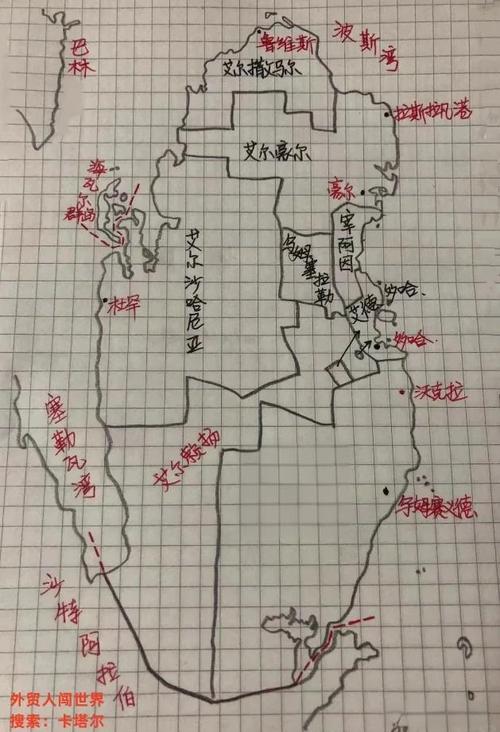 鲁维斯
波斯湾
巴林
艾尔撒玛尔
拉斯拉凡港
艾尔豪尔
海瓦尔群岛
豪尔
宰阿因
乌姆塞拉勒
艾尔沙哈尼亚
艾德
多哈
杜罕
多哈
沃克拉
塞勒瓦湾
艾尔赖扬
乌姆赛义德
沙特阿拉伯
外贸人闯世界
搜索：卡塔尔